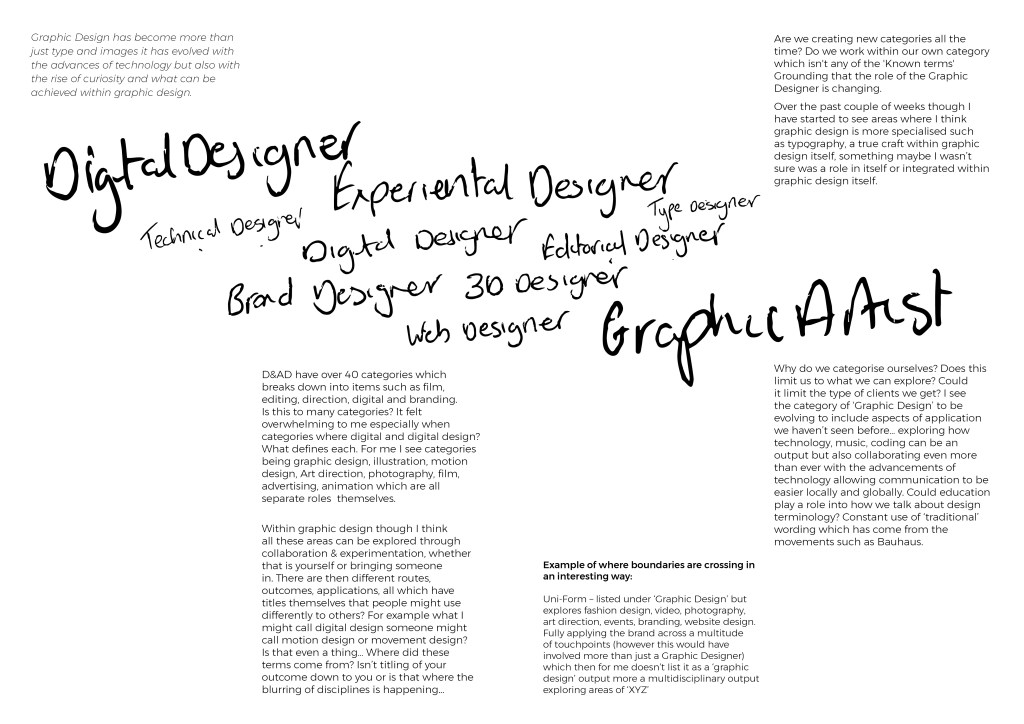 Graphic Design has become more than
just type and images it has evolved with
the advances of technology but also with
the rise of curiosity and what can be
achieved within graphic design.
Are we creating new categories all the
time? Do we work within our own category
which isn't any of the 'Known terms'
Grounding that the role of the Graphic
Designer is changing.
Over the past couple of weeks though I
have started to see areas where I think
graphic design is more specialised such
as typography, a true craft within graphic
design itself, something maybe I wasn't
sure was a role in itself or integrated within
graphic design itself.
Digital Designer
Experiental Designer
Type Designer
Technical Designer
Digital Designer
Editorial Designer
Brand Designer
3D Designer
Web Designer
Graphic Artist
D&AD have over 40 categories which
breaks down into items such as film,
editing, direction, digital and branding.
Is this to many categories? It felt
overwhelming to me especially when
categories where digital and digital design?
What defines each. For me I see categories
being graphic design, illustration, motion
design, Art direction, photography, film,
advertising, animation which are all
separate roles  themselves.
Within graphic design though I think
all these areas can be explored through
collaboration & experimentation, whether
that is yourself or bringing someone
in. There are then different routes,
outcomes, applications, all which have
titles themselves that people might use
differently to others? For example what I
might call digital design someone might
call motion design or movement design?
Is that even a thing... Where did these
terms come from? Isn't titling of your
outcome down to you or is that where the
blurring of disciplines is happening...
Example of where boundaries are crossing in
an interesting way:
Uni-Form – listed under 'Graphic Design' but
explores fashion design, video, photography,
art direction, events, branding, website design.
Fully applying the brand across a multitude
of touchpoints (however this would have
involved more than just a Graphic Designer)
which then for me doesn't list it as a 'graphic
design' output more a multidisciplinary output
exploring areas of 'XYZ'
Why do we categorise ourselves? Does this
limit us to what we can explore? Could
it limit the type of clients we get? I see
the category of 'Graphic Design' to be
evolving to include aspects of application
we haven't seen before... exploring how
technology, music, coding can be an
output but also collaborating even more
than ever with the advancements of
technology allowing communication to be
easier locally and globally. Could education
play a role into how we talk about design
terminology? Constant use of 'traditional'
wording which has come from the
movements such as Bauhaus.